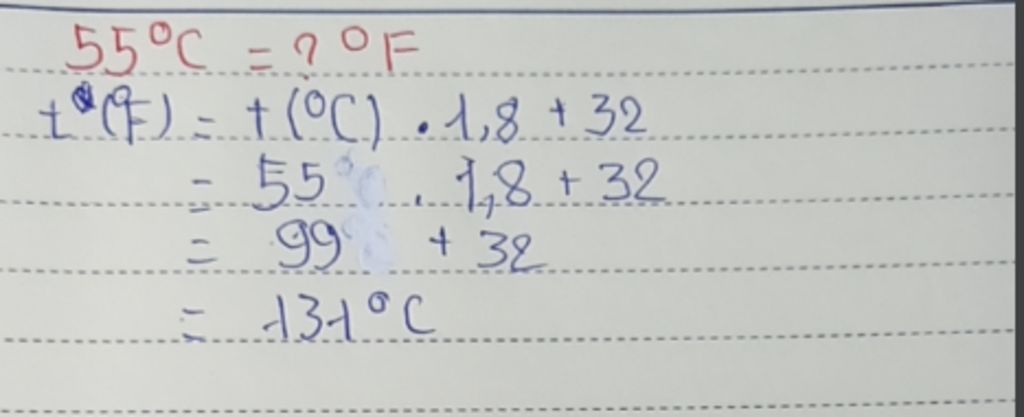 55°C = ? °F
t°(°F) = t(°C) . 1,8 + 32
= 55° . 1,8 + 32
= 99 + 32
= 131°C